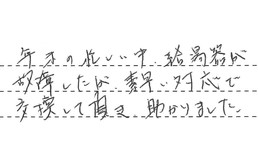 年末の忙しい中、給湯器が
故障したが、素早い対応で
交換して頂き、助かりました。